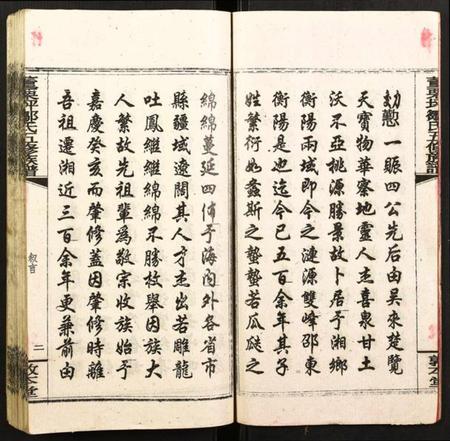 勍懃一賑四公先后由吴來楚覽
天寳物華察地靈人杰喜泉甘土
沃不亞桃源勝景故卜居于湘鄉
衡陽兩域即今之漣源雙峰邵東
衡陽是也迄今已五百餘年其子
姓繁衍如螽斯之蟄蟄若瓜瓞之
綿綿蔓延四佈于海内外各省市
縣疆域遼闊其人才杰出若雕龍
吐鳳繼繼繩繩不勝枚舉因族大
人繁故先祖輩爲敬宗收族始于
嘉慶癸亥而肇修蓋因肇修時離
吾祖遷湘近三百餘年更兼前由
叙言
二
敦本堂
鄒氏五修族譜